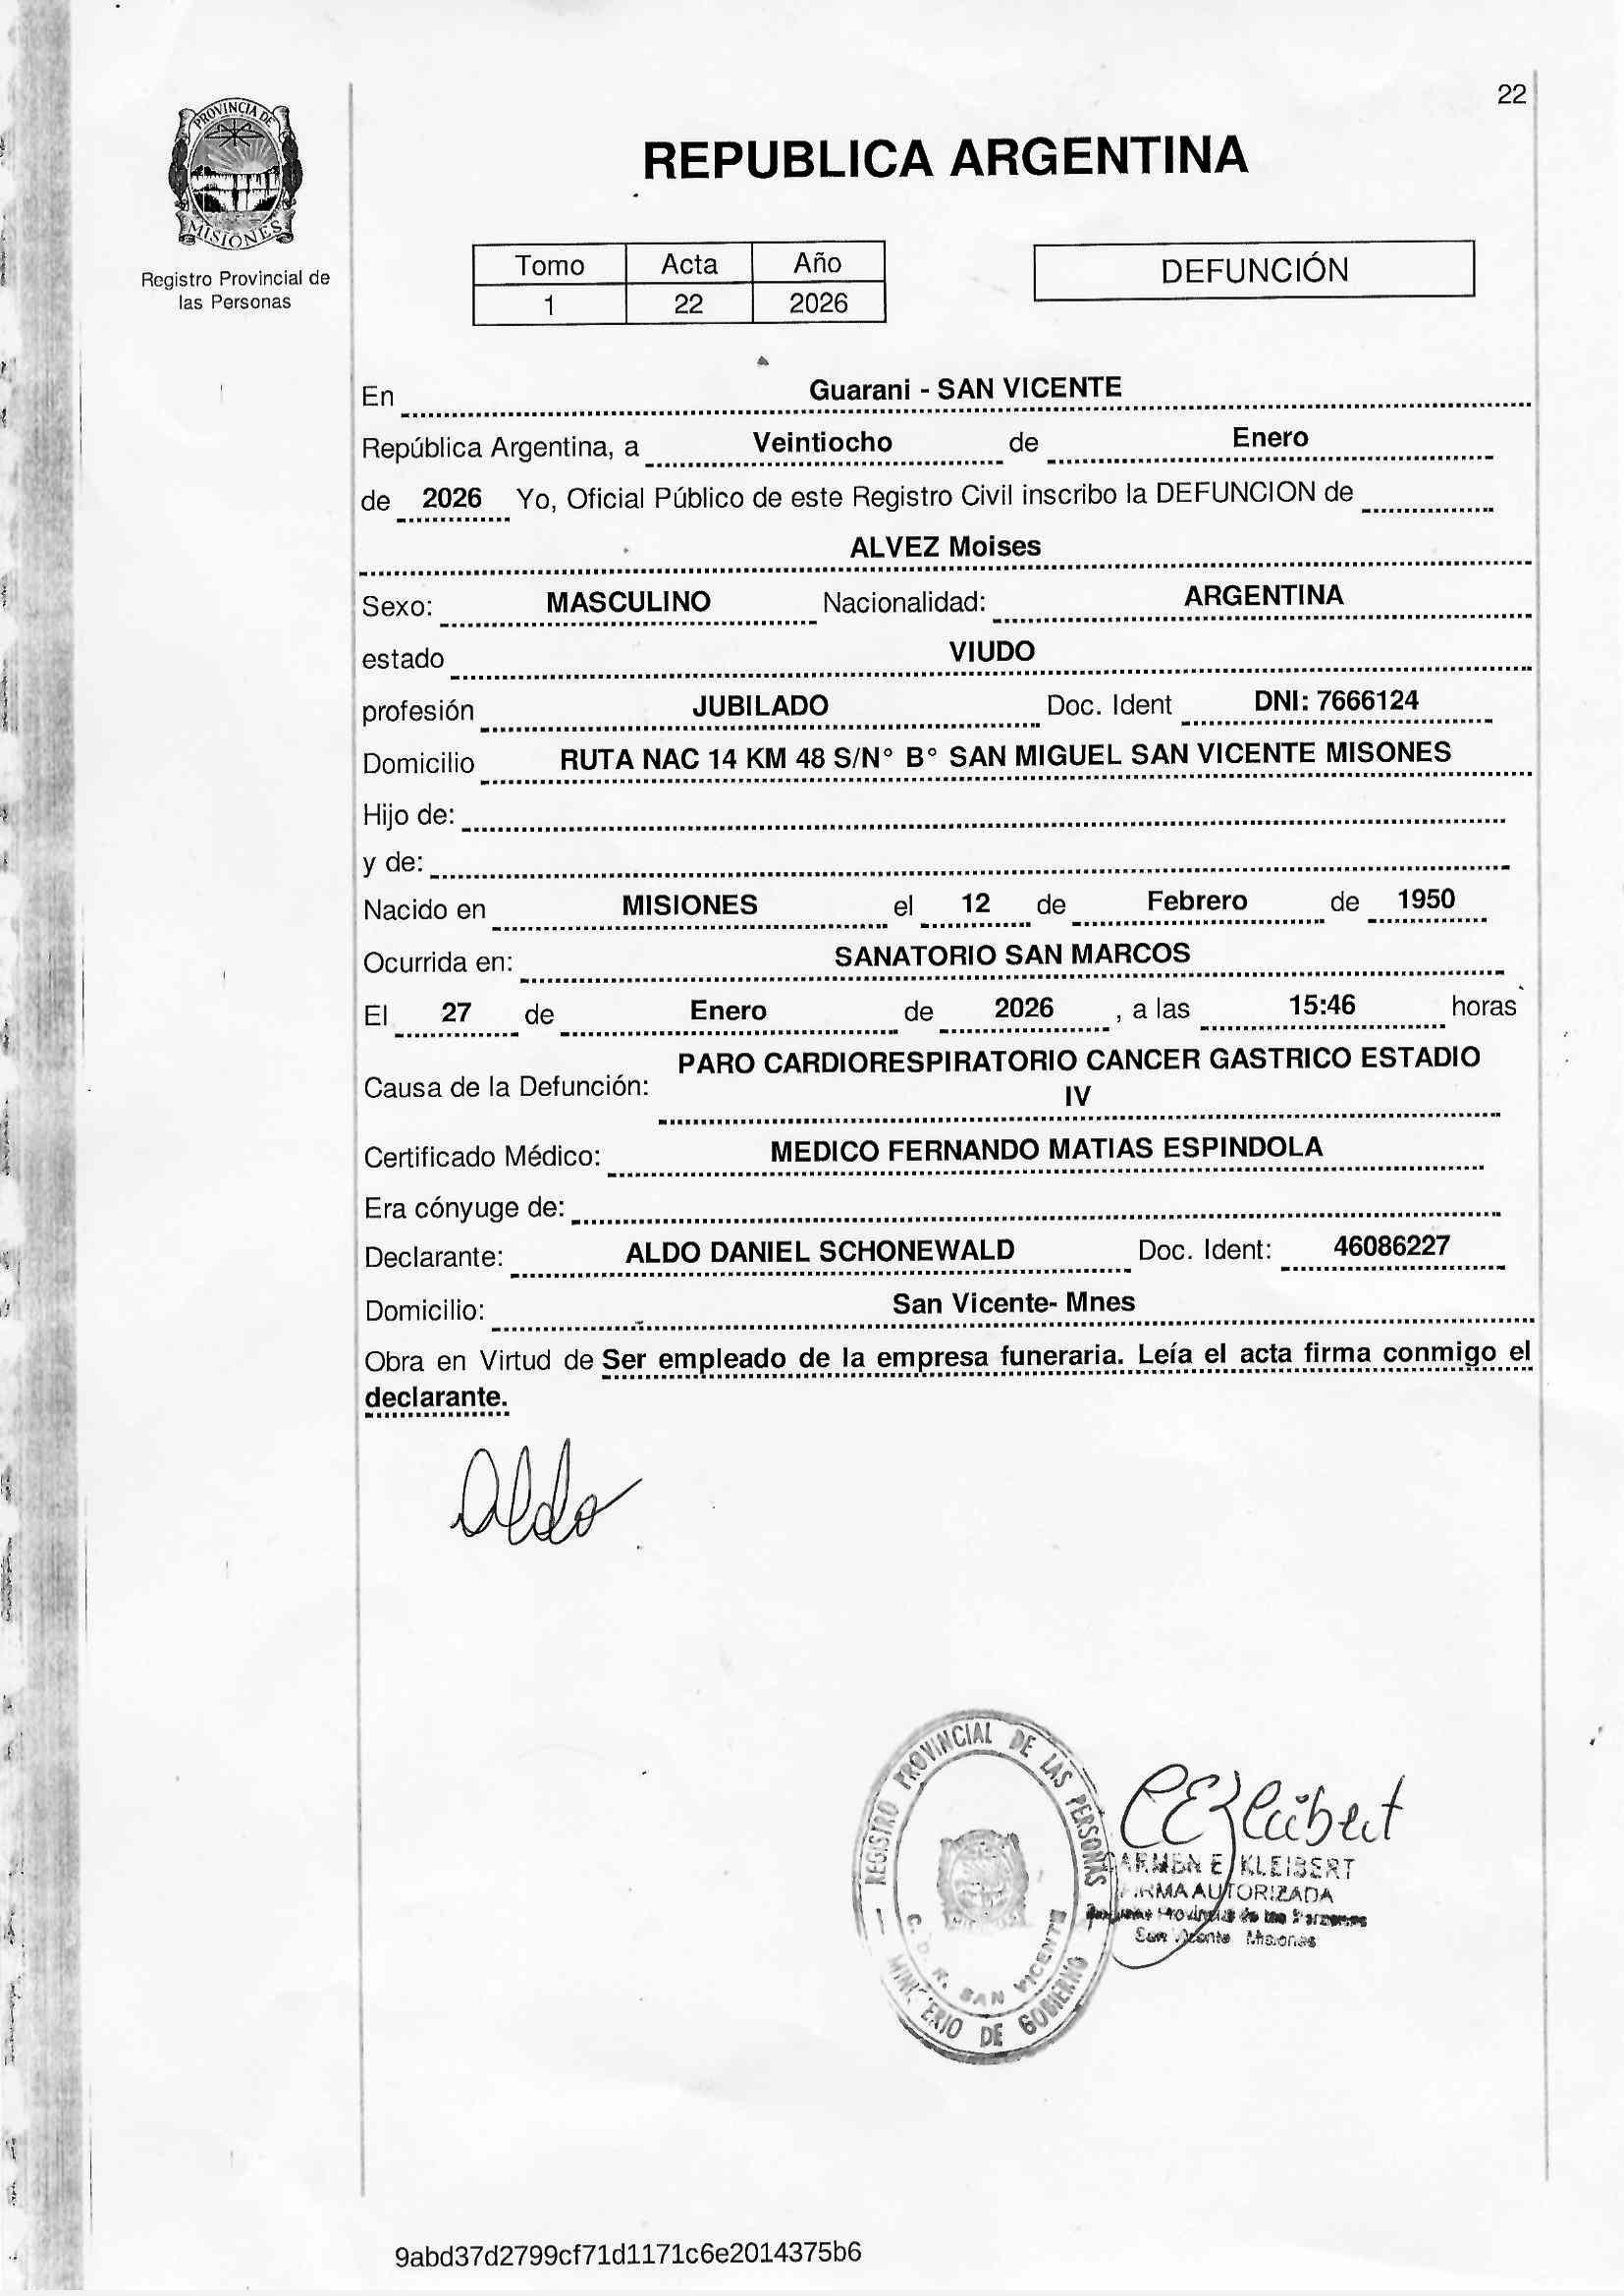 22
PROVINCIA DE
MISIONES
Registro Provincial de
las Personas
REPUBLICA ARGENTINA
Tomo Acta Año
1 22 2026
DEFUNCIÓN
En Guarani - SAN VICENTE
República Argentina, a Veintiocho de Enero
de 2026 Yo, Oficial Público de este Registro Civil inscribo la DEFUNCION de
ALVEZ Moises
Sexo: MASCULINO Nacionalidad: ARGENTINA
estado VIUDO
profesión JUBILADO Doc. Ident DNI: 7666124
Domicilio RUTA NAC 14 KM 48 S/N° B° SAN MIGUEL SAN VICENTE MISONES
Hijo de:
y de:
Nacido en MISIONES el 12 de Febrero de 1950
Ocurrida en: SANATORIO SAN MARCOS
El 27 de Enero de 2026 , a las 15:46 horas
Causa de la Defunción: PARO CARDIORESPIRATORIO CANCER GASTRICO ESTADIO
IV
Certificado Médico: MEDICO FERNANDO MATIAS ESPINDOLA
Era cónyuge de:
Declarante: ALDO DANIEL SCHONEWALD Doc. Ident: 46086227
Domicilio: San Vicente- Mnes
Obra en Virtud de Ser empleado de la empresa funeraria. Leía el acta firma conmigo el
declarante.
Aldo
REGISTRO PROVINCIAL DE LAS PERSONAS
C. D. R. SAN VICENTE
MINISTERIO DE GOBIERNO
CARMEN E KLEIBERT
FIRMA AUTORIZADA
Provincial de las Personas
San Vicente Misiones
9abd37d2799cf71d1171c6e2014375b6